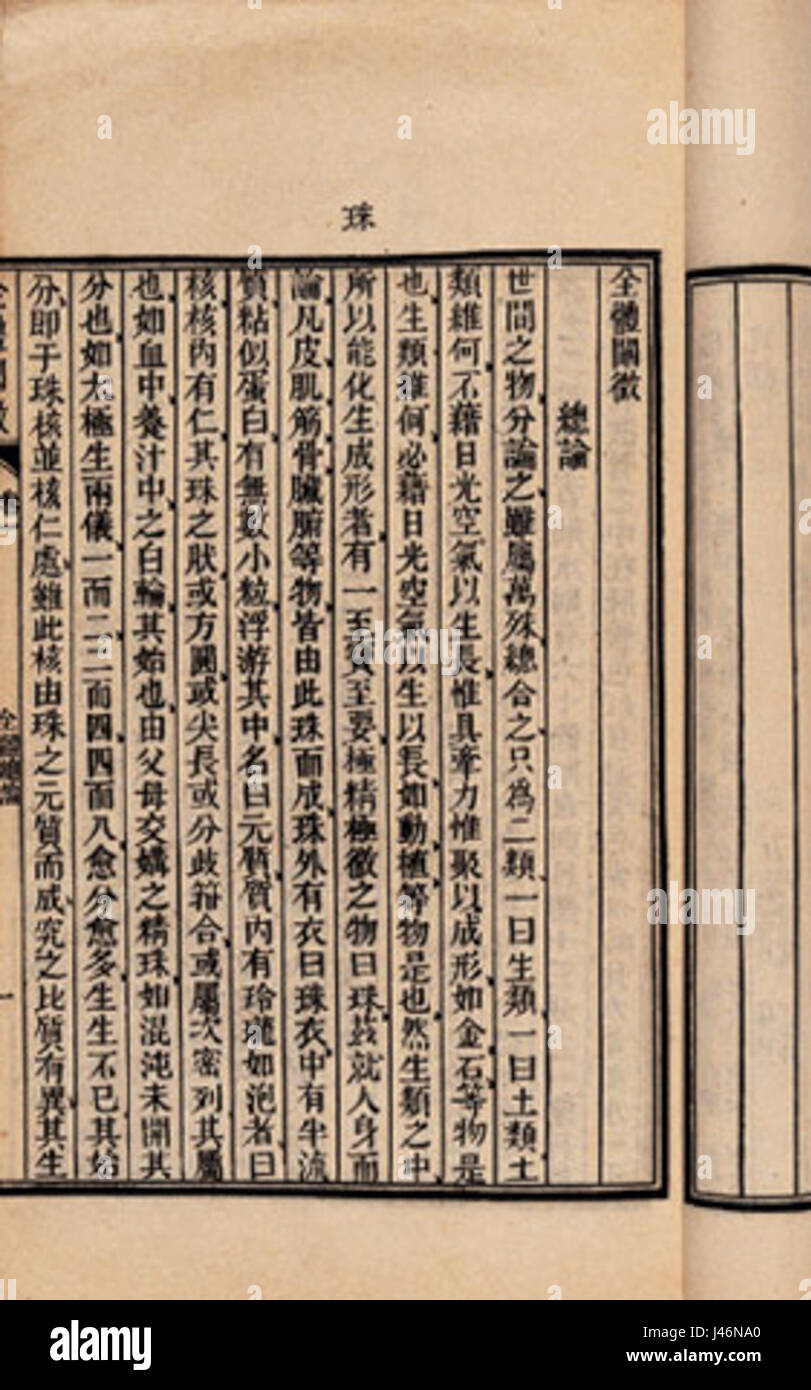 珠
全體闡微
總論
世間之物分論之雖屬萬殊總合之只為二類一曰生類一曰土類土
類維何不藉日光空氣以生長惟具牽力惟聚以成形如金石等物是
也生類維何必藉日光空氣以生以長如動植等物是也然生類之中
所以能化生成形者有一至要極精極微之物曰珠茲就人身而
論凡皮肌筋骨臟腑等物皆由此珠而成珠外有衣曰珠衣中有半流
質粘似蛋白有無數小粒浮游其中名曰元質質內有玲瓏如泡者曰
核核內有仁其珠之狀或方圓或尖長或分歧箝合或屬次密列其屬
也如血中養汁中之白輪其始也由父母交媾之精珠如混沌未開其
分也如太極生兩儀一而二二而四四而八愈分愈多生生不已其始
分即于珠核並核仁處雖此核由珠之元質而成究之比質有異其生
全體總論
一
alamy
a
alamy
Image ID: J46NA0
www.alamy.com